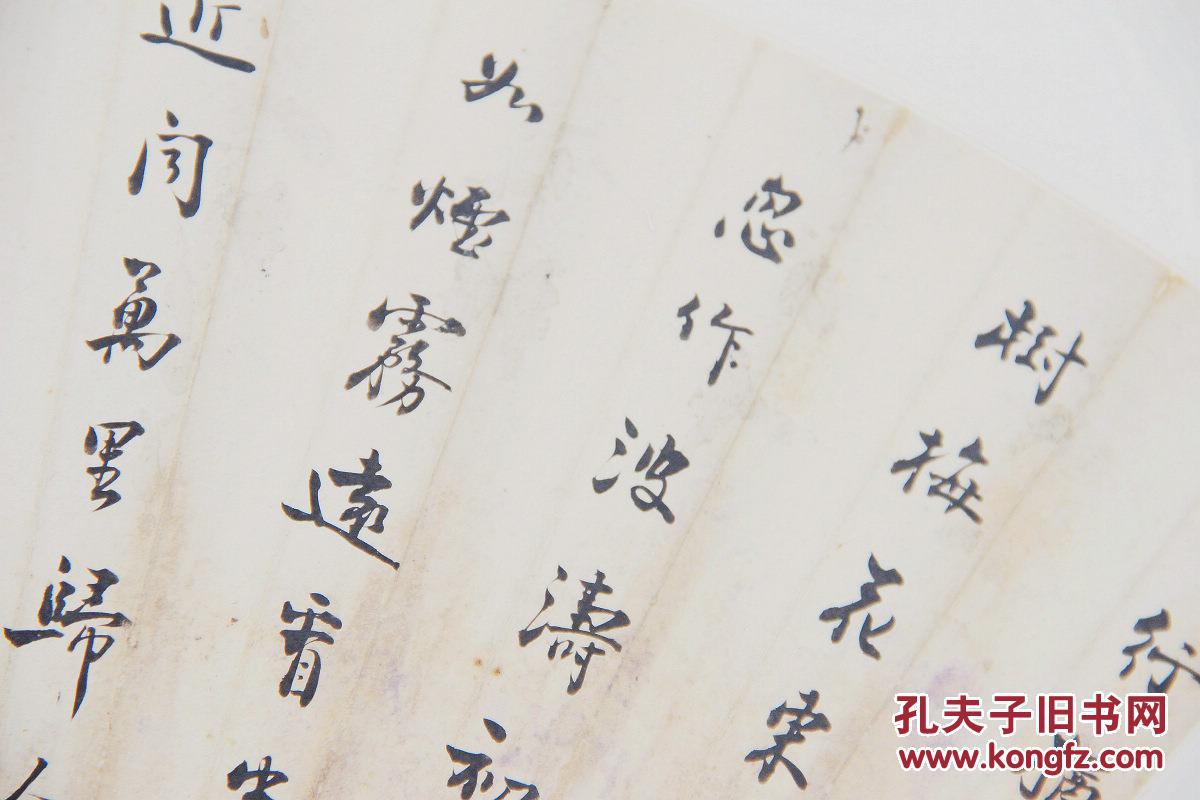 行
樹梅花
忽作波濤初
如煙霧遠看
近闻萬里歸
孔夫子旧书网
www.kongfz.com